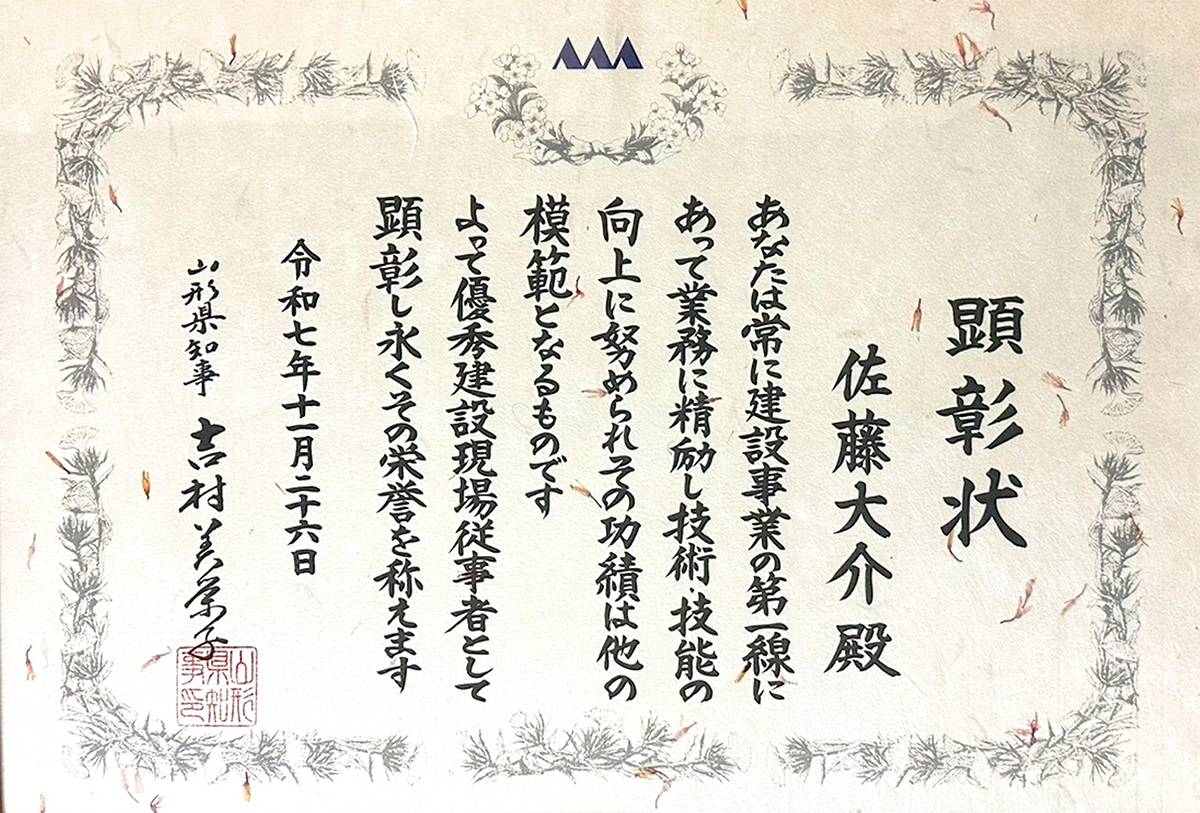 顕彰状
佐藤大介殿
あなたは常に建設事業の第一線に
あって業務に精励し技術・技能の
向上に努められその功績は他の
模範となるものです
よって優秀建設現場従事者として
顕彰し永くその栄誉を称えます
令和七年十一月二十六日
山形県知事 吉村美栄子
山形
県知
事印